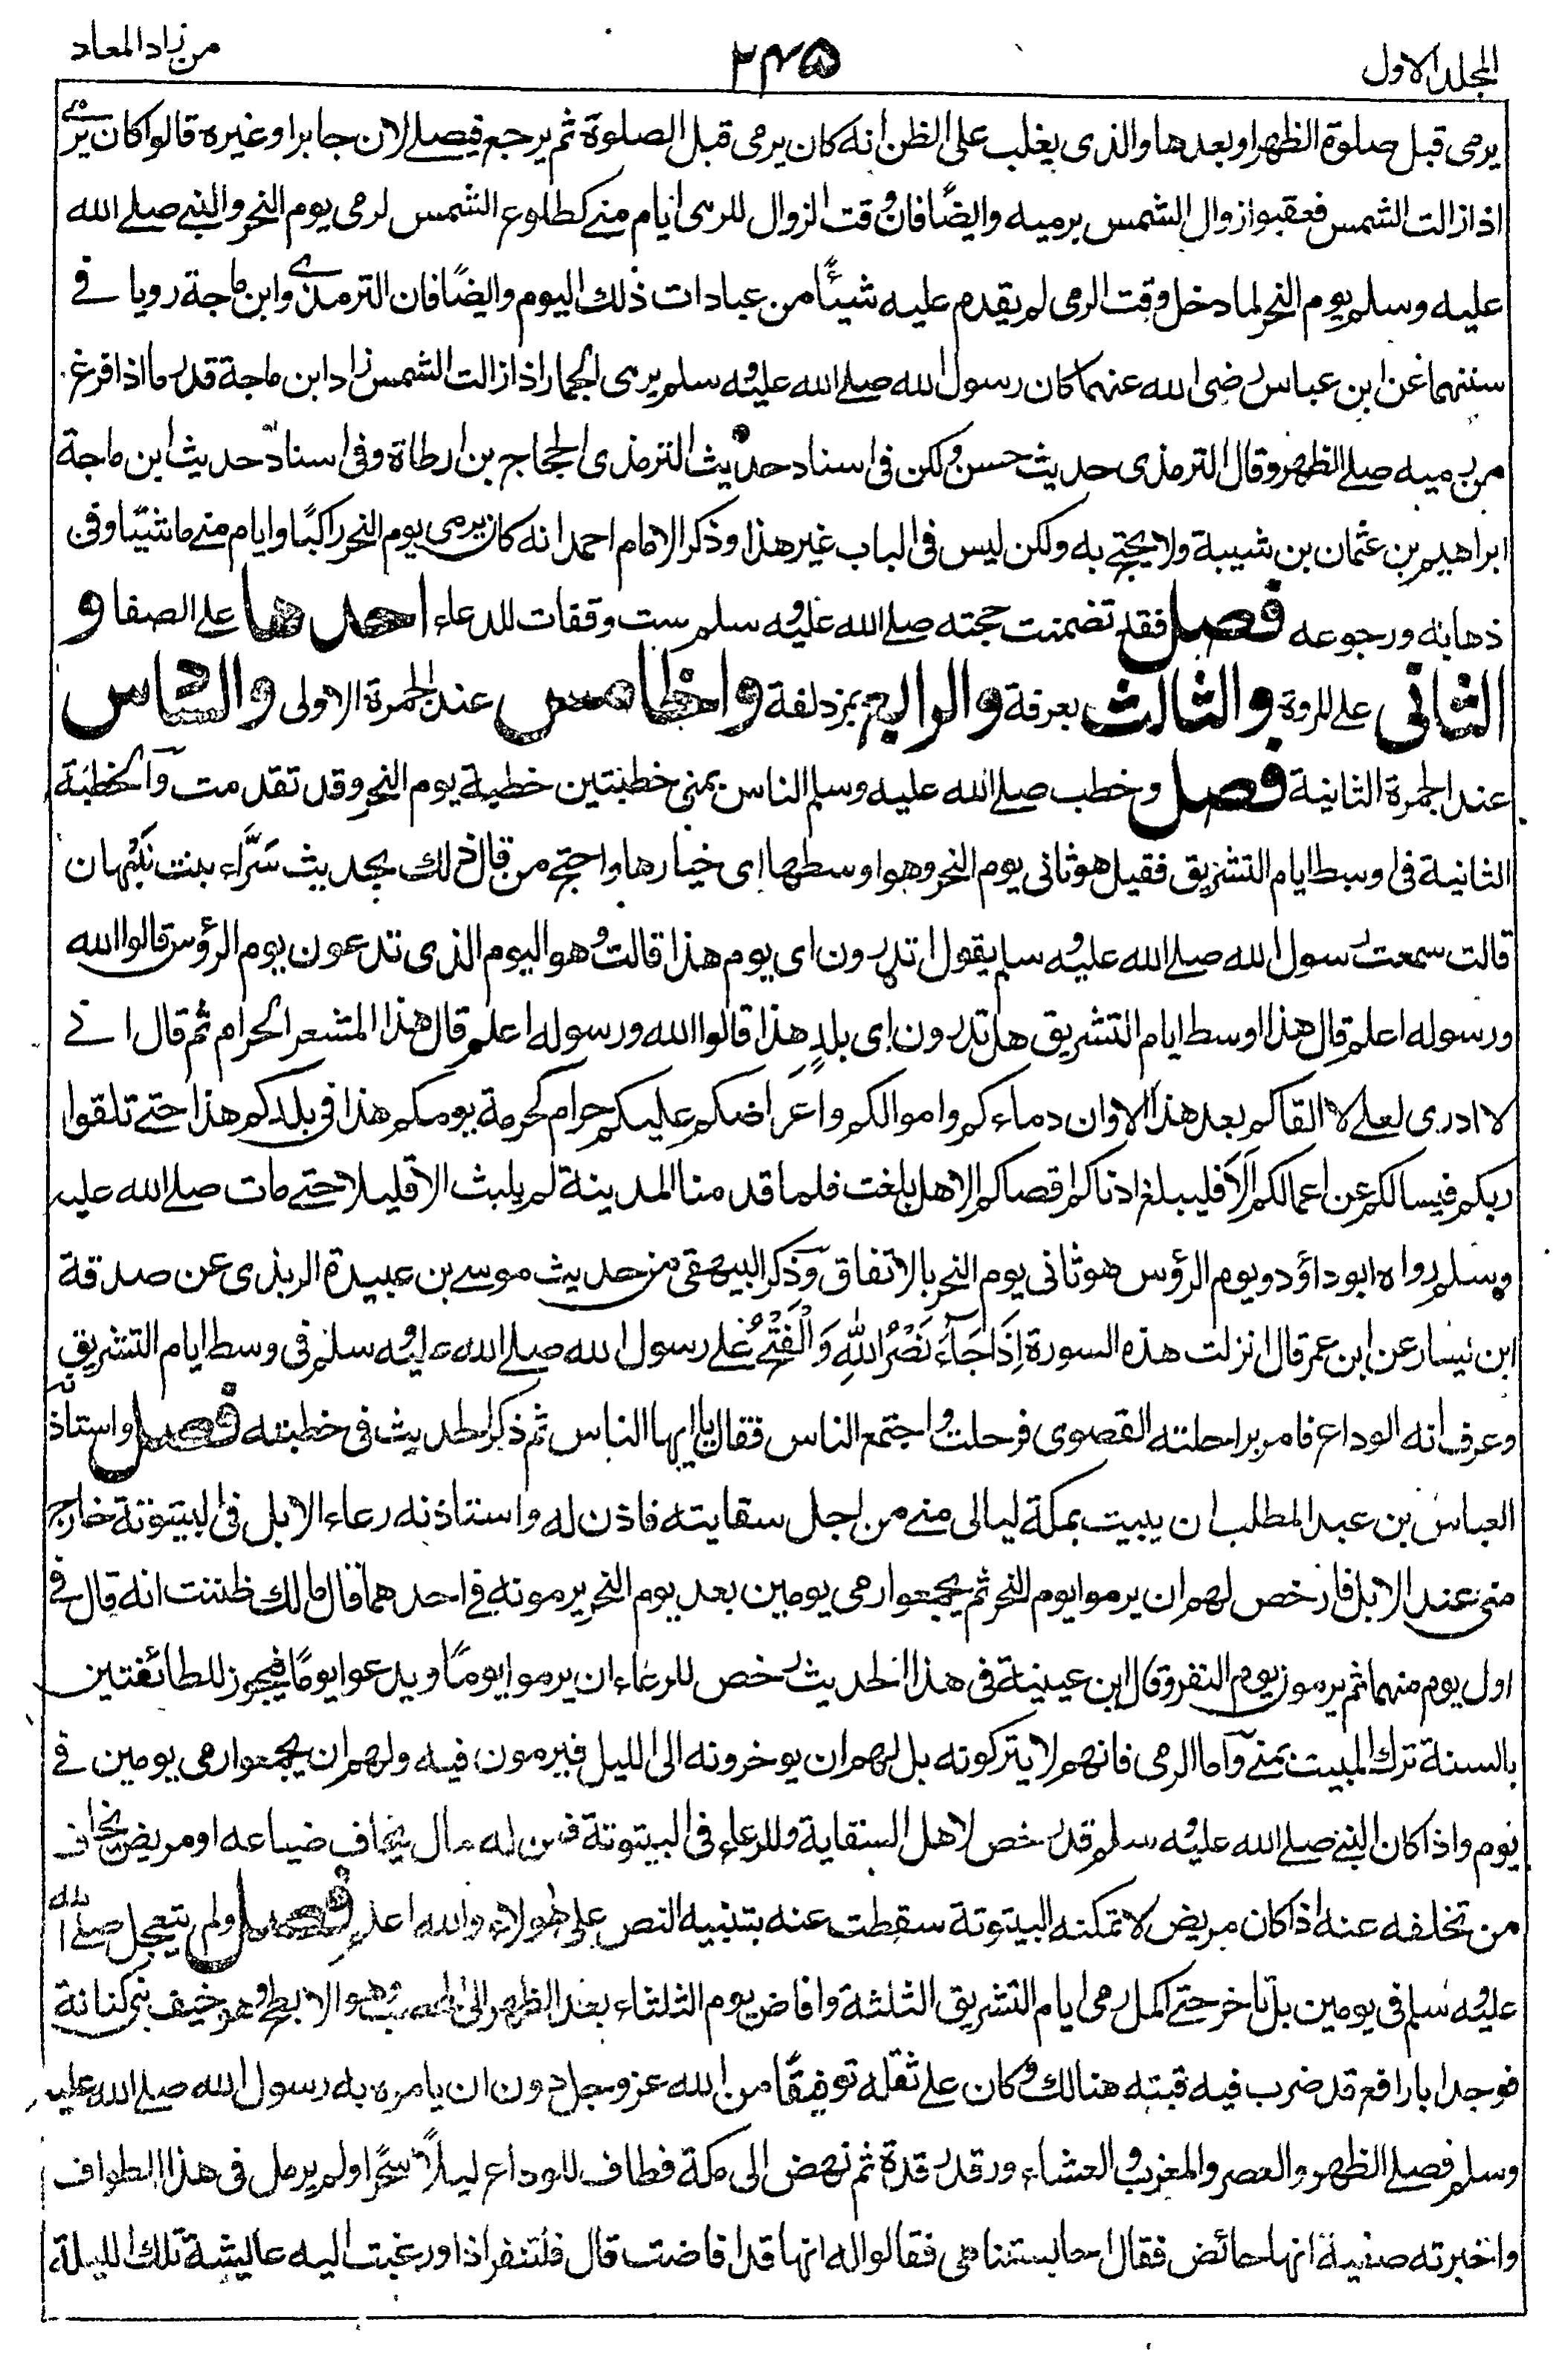 المجلد الاول
۲۴۵
من زاد المعاد
يرمى قبل صلوة الظهر او بعدها والذى يغلب على الظن انه كان يرمى قبل الصلوة ثم يرجع فيصلے لان جابرا وغيره قالوا كان يرمے
اذا زالت الشمس فعقبوا زوال الشمس برميه وايضًا فان وقت الزوال للرمى ايام منے كطلوع الشمس لرمى يوم النحر والنبے صلے الله
عليه وسلم يوم النحر لما دخل وقت الرمى لم يقدم عليه شيئًا من عبادات ذلك اليوم وايضًا فان الترمذے وابن ماجة رويا فے
سننهما عن ابن عباس رضى الله عنهما كان رسول الله صلے الله عليه وسلم يرمى الجمار اذا زالت الشمس زاد ابن ماجة قدر ما اذا فرغ
من رميه صلے الظهر وقال الترمذى حديث حسن ولكن فى اسناد حديث الترمذى الحجاج بن ارطاة وفى اسناد حديث ابن ماجة
ابراهيم بن عثمان بن شيبة ولا يحتج به ولكن ليس فى الباب غير هذا وذكر الامام احمد انه كان يرمى يوم النحر راكبًا وايام منے ماشيًا وفى
ذهابه ورجوعه فصل فقد تضمنت حجته صلے الله عليه وسلم ست وقفات للدعاء احدها علے الصفا و
الثانى علے المروة والثالث بعرفة والرابع بمزدلفة والخامس عند الجمرة الاولى والسادس
عند الجمرة الثانية فصل وخطب صلے الله عليه وسلم الناس بمنى خطبتين خطبة يوم النحر وقد تقدمت والخطبة
الثانية فى اوسط ايام التشريق فقيل هو ثانى يوم النحر وهو اوسطها اى خيارها واحتج من قال ذلك بحديث سَرَّاء بنت نَبْهان
قالت سمعت رسول الله صلے الله عليه وسلم يقول اتدرون اى يوم هذا قالت وهو اليوم الذى تدعون يوم الرؤس قالوا الله
ورسوله اعلم قال هذا اوسط ايام التشريق هل تدرون اى بلد هذا قالوا الله ورسوله اعلم قال هذا المشعر الحرام ثم قال انے
لا ادرى لعلے لا القاكم بعد هذا الا وان دماءكم واموالكم واعراضكم عليكم حرام كحرمة يومكم هذا فى بلدكم هذا حتے تلقوا
ربكم فيسالكم عن اعمالكم اَلَا فليبلغ ادناكم اقصاكم الا هل بلغت فلما قدمنا المدينة لم يلبث الا قليلا حتے مات صلے الله عليه
وسلم رواه ابو داؤد ويوم الرؤس هو ثانى يوم النحر بالاتفاق وذكر البيهقى من حديث موسے بن عبيدة الربذى عن صدقة
ابن يسار عن ابن عمر قال انزلت هذه السورة اِذَا جَآءَ نَصْرُ اللّٰهِ وَالْفَتْحُ علے رسول الله صلے الله عليه وسلم فى وسط ايام التشريق
وعرف انه الوداع فامر براحلته القصوى فرحلت واجتمع الناس فقال يا ايها الناس ثم ذكر الحديث فى خطبته فصل واستاذن
العباس بن عبد المطلب ان يبيت بمكة ليالى منے من اجل سقايته فاذن له واستاذنه رعاء الابل فى البيتوتة خارج
منى عند الابل فارخص لهم ان يرموا يوم النحر ثم يجمعوا رمى يومين بعد يوم النحر يرمونه فے احدهما قال مالك ظننت انه قال فے
اول يوم منهما ثم يرمون يوم النفر وقال ابن عيينة فى هذا الحديث رخص للرعاء ان يرموا يومًا ويدعوا يومًا فيجوز للطائفتين
بالسنة ترك المبيت بمنے واما الرمى فانهم لا يتركونه بل لهم ان يوخرونه الى الليل فيرمون فيه ولهم ان يجمعوا رمى يومين فے
يوم واذا كان النبے صلے الله عليه وسلم قد رخص لاهل السقاية وللرعاء فى البيتوتة فمن له مال يخاف ضياعه او مريض يخاف
من تخلفه عنه اذا كان مريض لا تمكنه البيتوتة سقطت عنه بتنبيه النص على هولاء والله اعلم فصل ولم يتعجل صلے الله
عليه وسلم فى يومين بل تاخر حتے اكمل رمى ايام التشريق الثلثة وافاض يوم الثلثاء بعد الظهر الى المحصب وهو الابطح وهو خيف بنى كنانة
فوجد ابا رافع قد ضرب فيه قبته هنالك وكان علے ثقله توفيقًا من الله عز وجل دون ان يامره به رسول الله صلے الله عليه
وسلم فصلے الظهر والعصر والمغرب والعشاء ورقد رقدة ثم نهض الى مكة فطاف للوداع ليلًا سحرًا ولم يرمل فى هذا الطواف
واخبرته صفية انها حائض فقال احابستنا هى فقالوا له انها قد افاضت قال فلتنفر اذا ورغبت اليه عايشة تلك الليلة